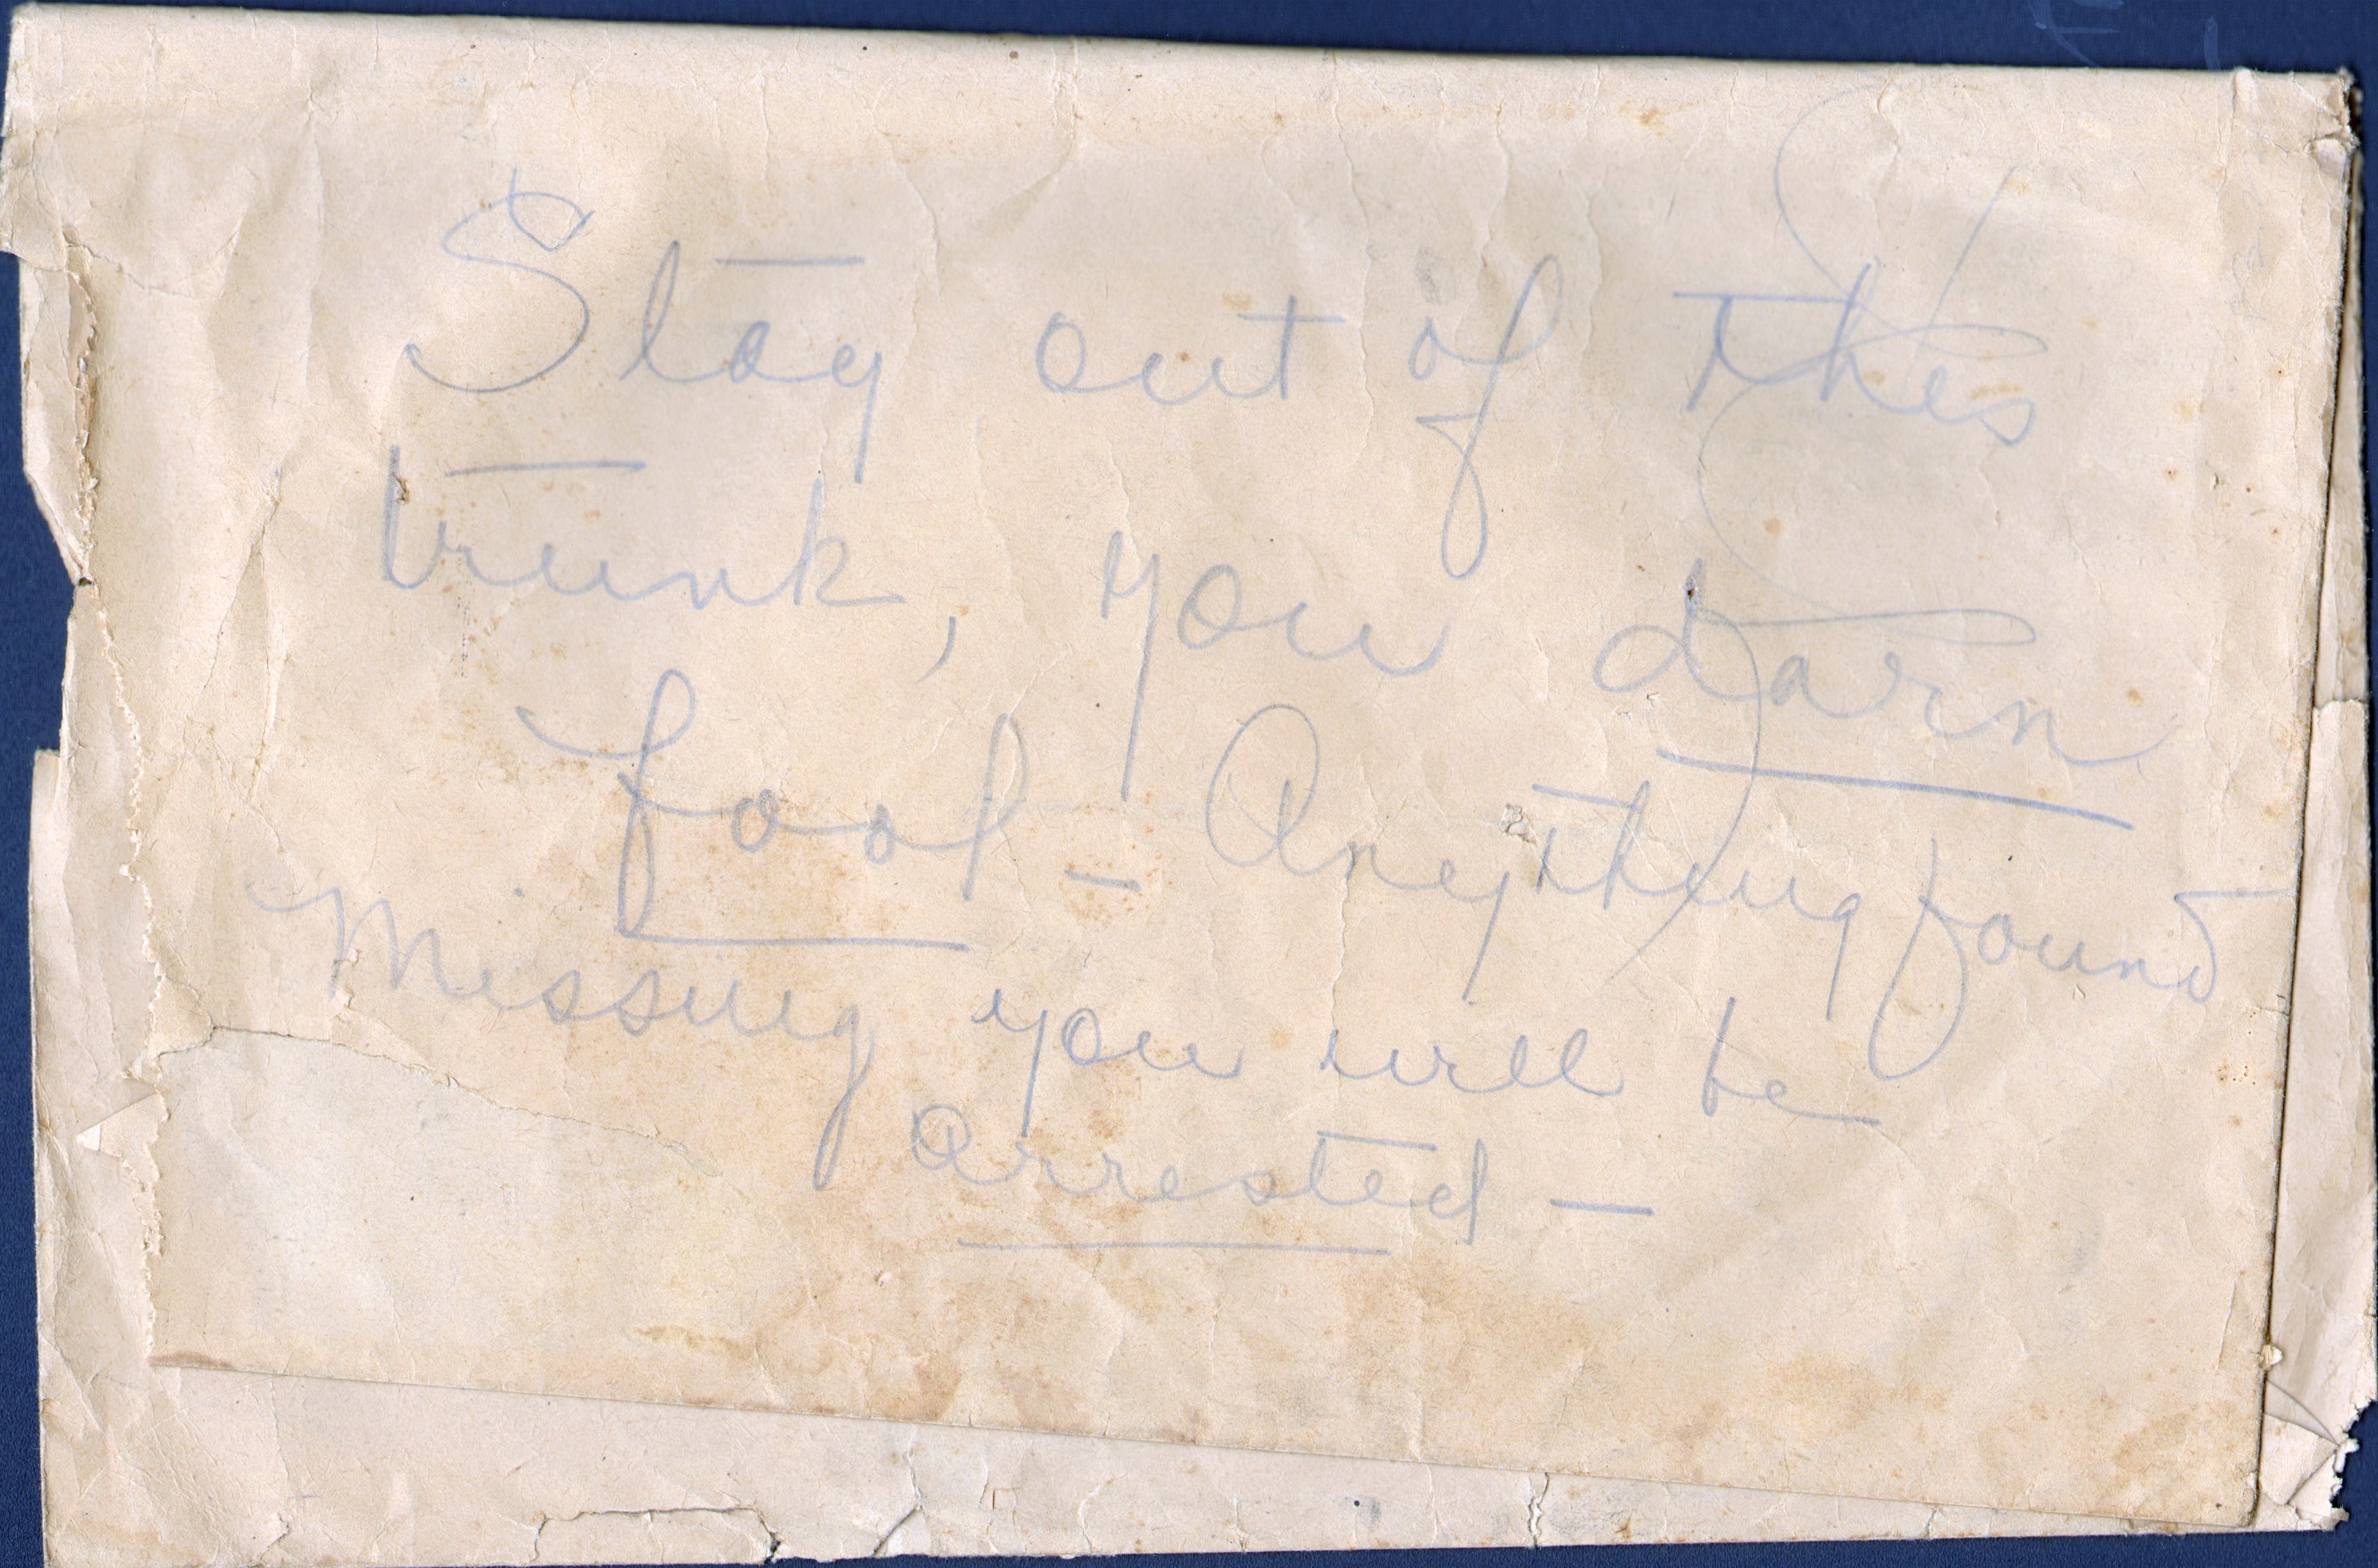 Stay out of this
trunk, you darn
fool - Anything found
Missing you will be
arrested -